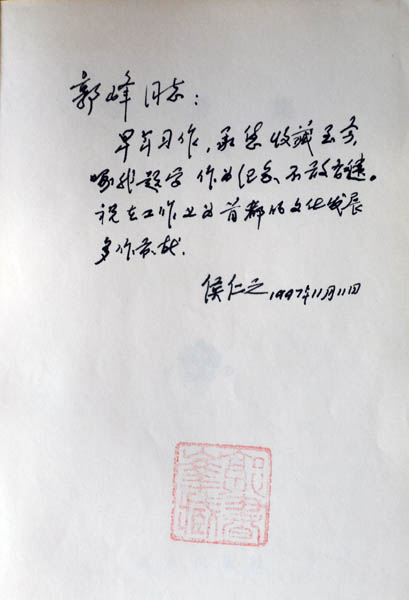 郭峰同志：
早年习作，承您收藏至今，
嘱我题字 作为纪念，不敢
祝在工作上为首都的文化发展
多作贡献.
侯仁之 1997年11月11日